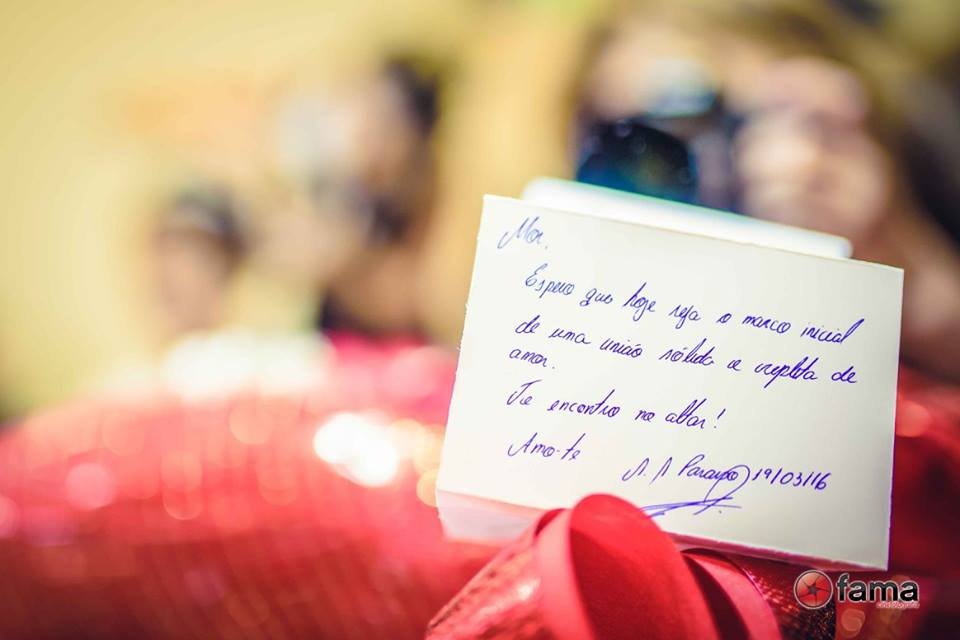 Mor,
Espero que hoje seja o marco inicial
de uma união sólida e repleta de
amor.
Te encontro no altar!
Amo-te
19/03/16
fama